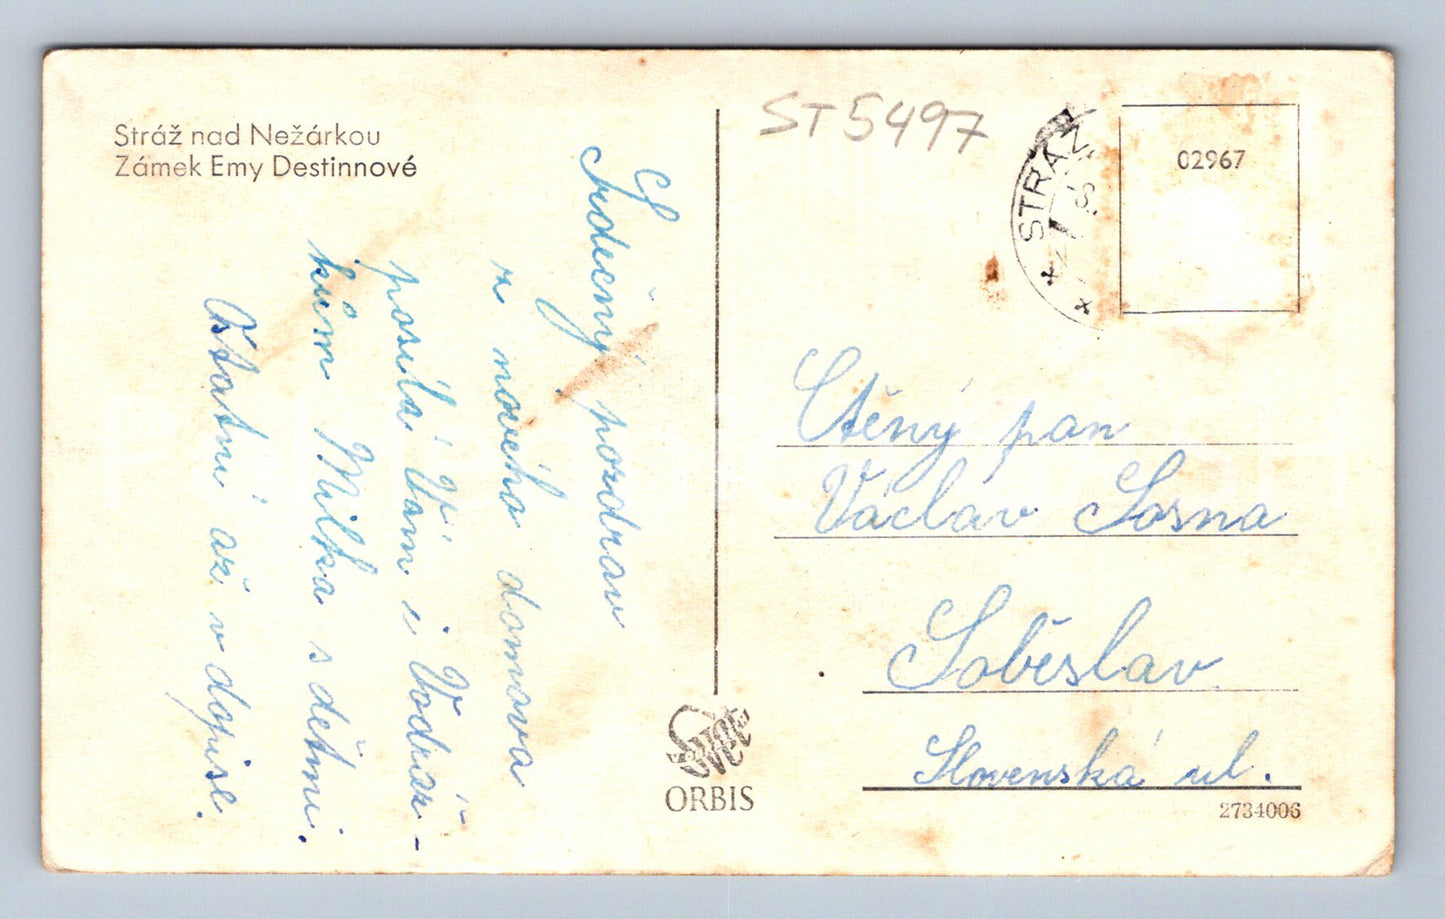 Stráž nad Nežárkou
Zámek Emy Destinnové
ST5497
STRÁŽ
02967
Srdečný pozdrav
z nového domova
posílá Vám i Vodraž-
kům Milka s dětmi.
Ostatní až v dopise.
Ctěný pan
Václav Sosna
Soběslav
Slovenská ul.
Svět
ORBIS
2734006